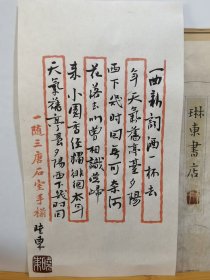 一曲新詞酒一杯去
年天氣舊亭臺夕陽
西下幾時回無可奈何
花落去似曾相識燕歸
来小園香徑獨徘徊去年
天氣舊亭臺夕陽西下幾時回
三唐石室手
琳東書店